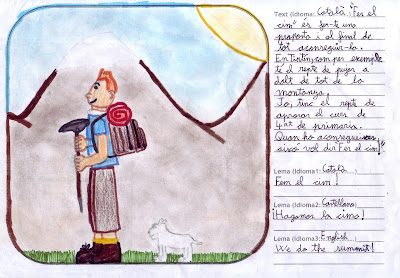 Text (Idioma: Català) "Fer el
cim" és fer-te una
proposta i al final de
tot aconseguir-la.
En Tintin, com per exemple
té el repte de pujar a
dalt de tot de la
montanya.
Jo, tinc el repte de
aprovar el curs de
4rt de primaria.
Quan ho aconsegueixi,
això vol dir Fer el cim!"
Lema (Idioma1: Català...)
Fem el cim!
Lema (Idioma2: Castellano)
¡Hagamos la cima!
Lema (Idioma3: English...)
We do the summit!